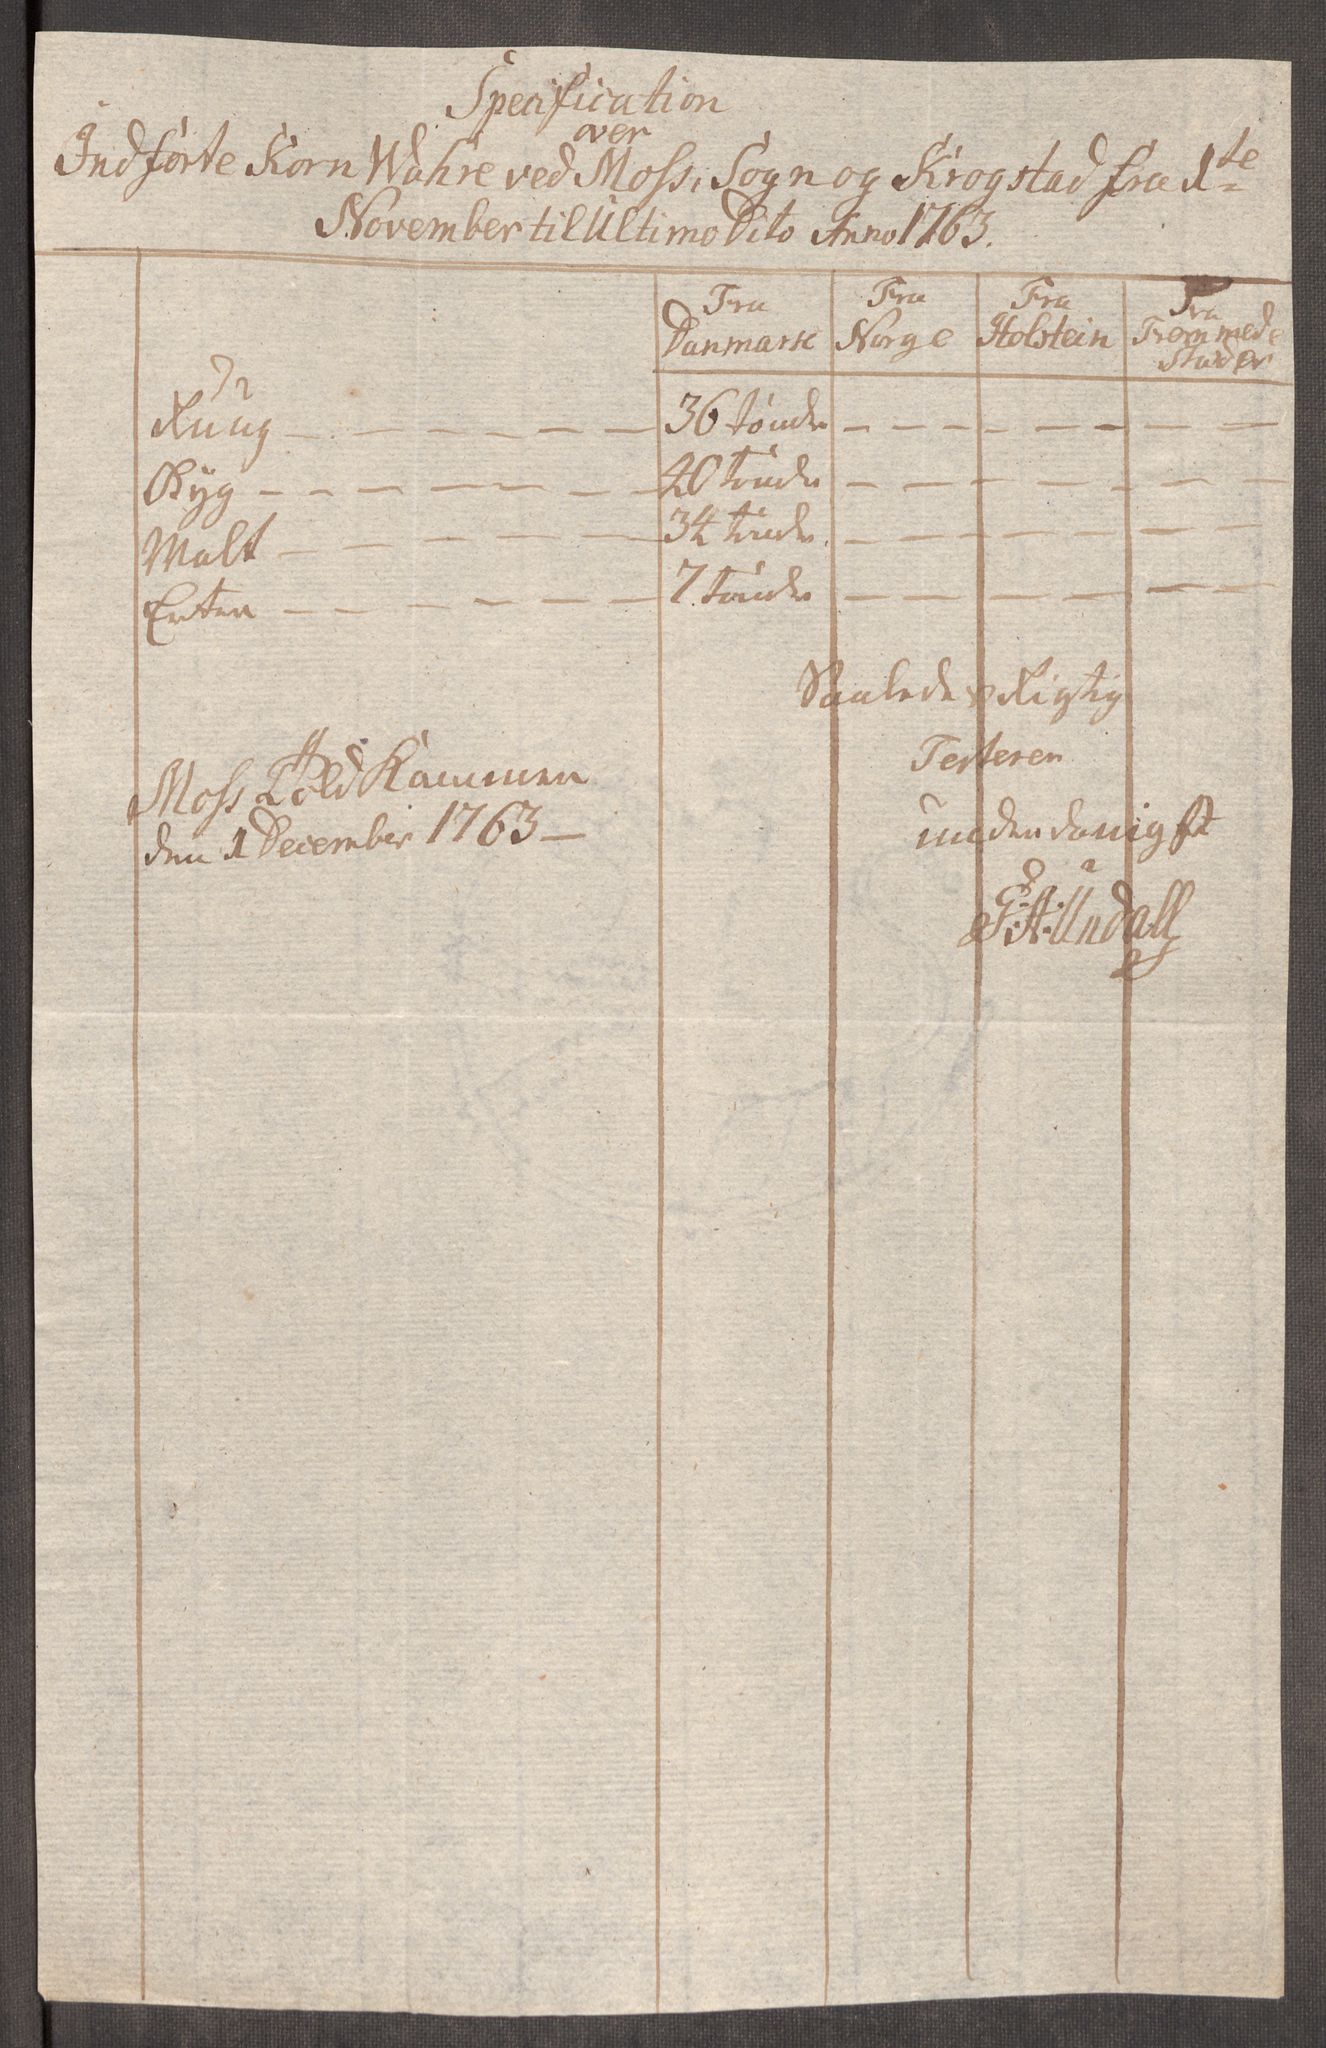 Specification
over
Indførte Korn Wahre ved Moss, Sogn og Krogstad fra 1te
November til Ultimo Dito Anno 1763.
Fra Danmark Fra Norge Fra Holstein Fra Fremmede Stæder
Ruug - - - - - - 36 tønder - - - - - - - -
Byg - - - - - - 40 tønder - - - - - - - -
Malt - - - - - - 34 tønder. - - - - - - - -
Erter - - - - - - 7 tønder - - - - - - - -
Saaledes Rigtig
Testerer
underdanigst
Moss Told Kammer
den 1 December 1763 -
Undall